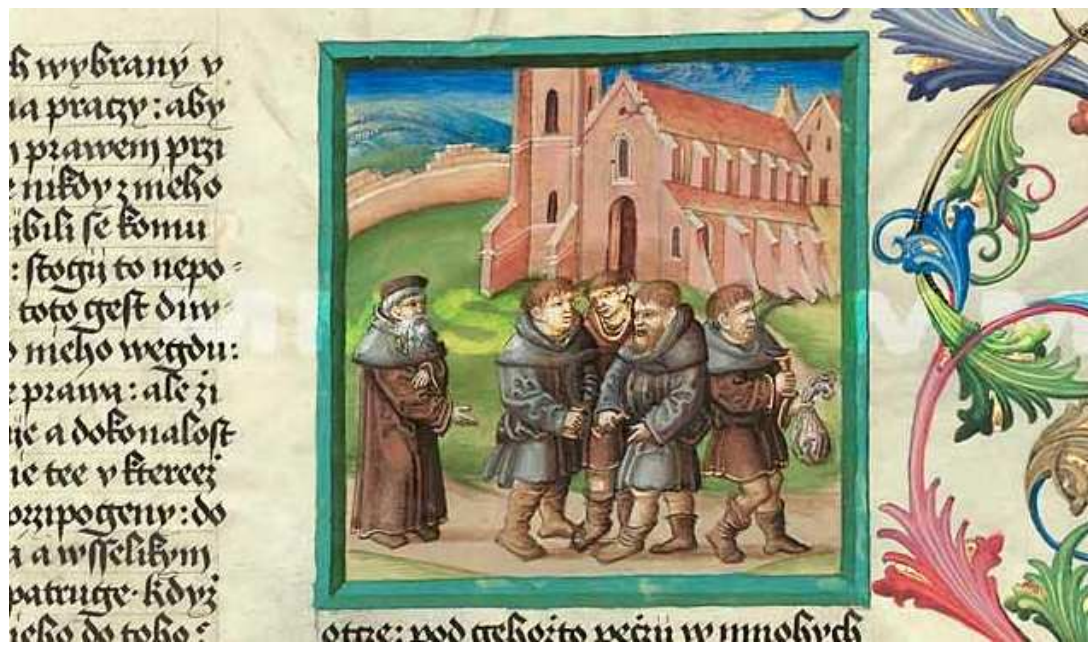 h wybraný v
na praczy: aby
prawem przi
nikdy z mého
gbili se komu
: stogij to nepo=
toto gest diw=
o nieho wegdu:
prawa: ale zi
a dokonalost
ie tee v ktereez
przipogeny: do
a a wsselikym
patruge. kdyz
ieho do toho:
otcze: pod gehožto peczij w mnohych